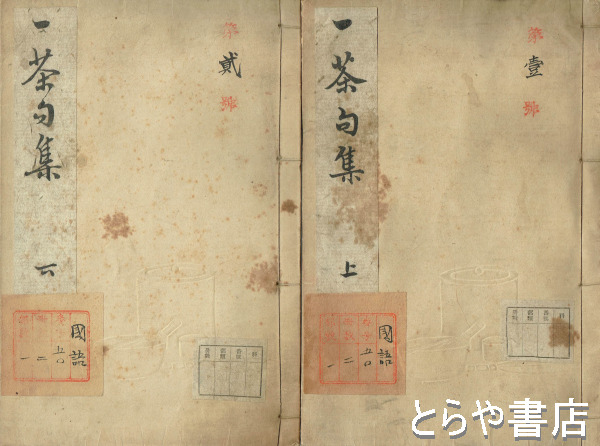 一茶句集
上
第壹號
國語
五〇
二
一
一茶句集
下
第貳號
國語
五〇
二
一
とらや書店